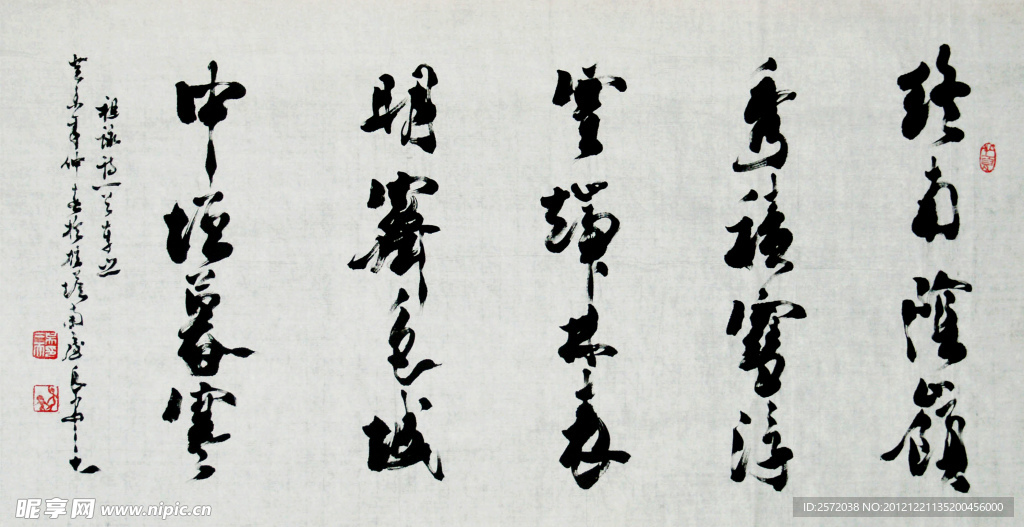 終南陰嶺
秀積雪浮
雲端林表
明霽色城
中增暮寒
祖詠詩一首
癸未年仲春於
昵享网 www.nipic.cn
ID:2572038 NO:20121221135200456000